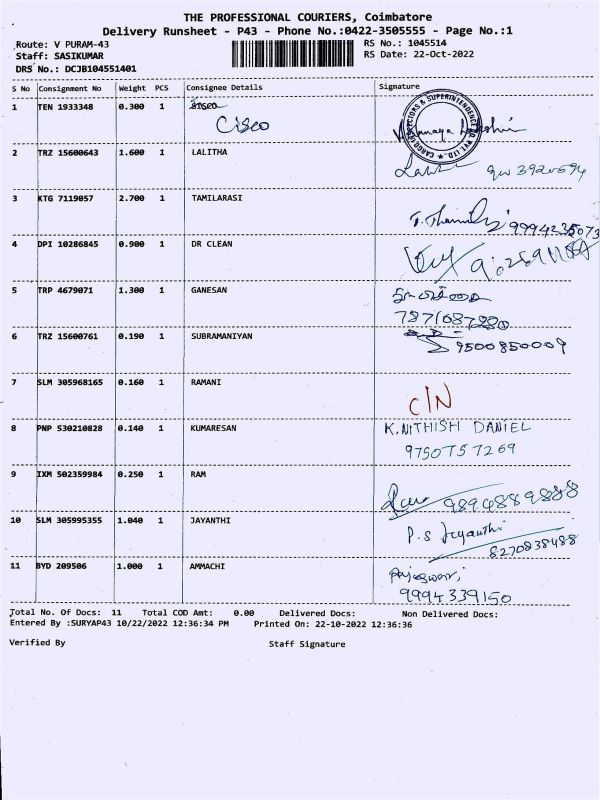 THE PROFESSIONAL COURIERS, Coimbatore
Delivery Runsheet - P43 - Phone No.:0422-3505555 - Page No.:1
Route: V PURAM-43 RS No.: 1045514
Staff: SASIKUMAR RS Date: 22-Oct-2022
DRS No.: DCJB104551401
S No Consignment No Weight PCS Consignee Details Signature
1 TEN 1933348 0.300 1
Cisco
2 TRZ 15600643 1.600 1 LALITHA
3 KTG 7119057 2.700 1 TAMILARASI
9994235073
4 DPI 10286845 0.900 1 DR CLEAN
5 TRP 4679071 1.300 1 GANESAN
7871687280
6 TRZ 15600761 0.190 1 SUBRAMANIYAN
9500850009
7 SLM 305968165 0.160 1 RAMANI
C/N
8 PNP 530210828 0.140 1 KUMARESAN K.NITHISH DANIEL
9750757269
9 IXM 502359984 0.250 1 RAM
9894889888
10 SLM 305995355 1.040 1 JAYANTHI P.S Jeyanthi
8270838488
11 BYD 209506 1.000 1 AMMACHI Rajeswari
9994339150
Total No. Of Docs: 11 Total COD Amt: 0.00 Delivered Docs: Non Delivered Docs:
Entered By :SURYAP43 10/22/2022 12:36:34 PM Printed On: 22-10-2022 12:36:36
Verified By Staff Signature